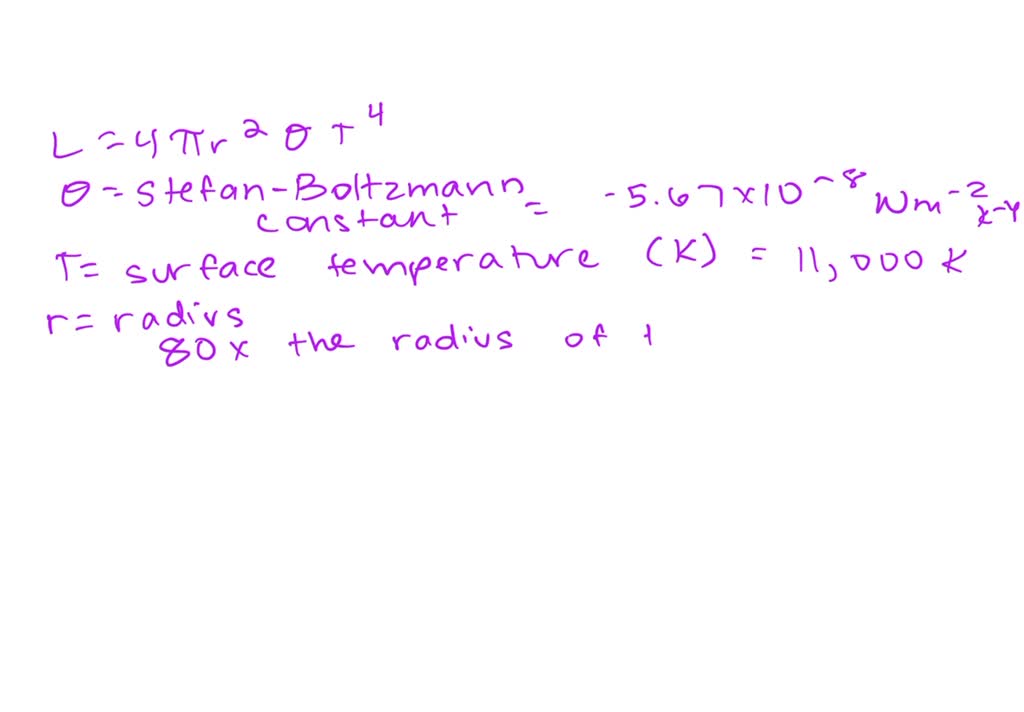 L = 4πr² θ T⁴
θ = Stefan-Boltzmann constant = -5.67 x 10⁻⁸ Wm⁻² K⁻⁴
T = surface temperature (K) = 11,000 K
r = radius
80x the radius of t